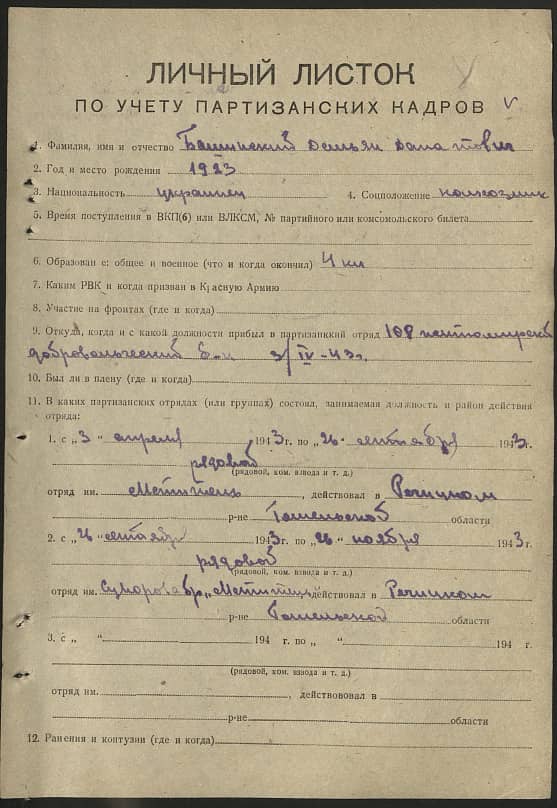 ЛИЧНЫЙ ЛИСТОК
ПО УЧЕТУ ПАРТИЗАНСКИХ КАДРОВ
1. Фамилия, имя и отчество Демьян
2. Год и место рождения 1923
3. Национальность украинец 4. Соцположение колхозник
5. Время поступления в ВКП(б) или ВЛКСМ, № партийного или комсомольского билета
6. Образование: общее и военное (что и когда окончил) 4 кл
7. Каким РВК и когда призван в Красную Армию
8. Участие на фронтах (где и когда)
9. Откуда, когда и с какой должности прибыл в партизанкий отряд 108
добровольческий б-н 3/IV-43г.
10. Был ли в плену (где и когда)
11. В каких партизанских отрядах (или группах) состоял, занимаемая должность и район действия
отряда:
1. с „3" апреля 1943 г. по „26" сентября 1943 г.
рядовой
(рядовой, ком. взвода и т. д.)
отряд им. , действовал в Речицком
р-не Гомельской области
2. с „26" сентября 1943 г. по „26" ноября 1943 г.
рядовой
(рядовой, ком. взвода и т. д.)
отряд им. Суворова бр. действовал в Речицком
р-не Гомельской области
3. с „ " 194 г. по „ " 194 г.
(рядовой, ком. взвода и т. д.)
отряд им. , действововал в
р-не области
12. Ранения и контузии (где и когда)